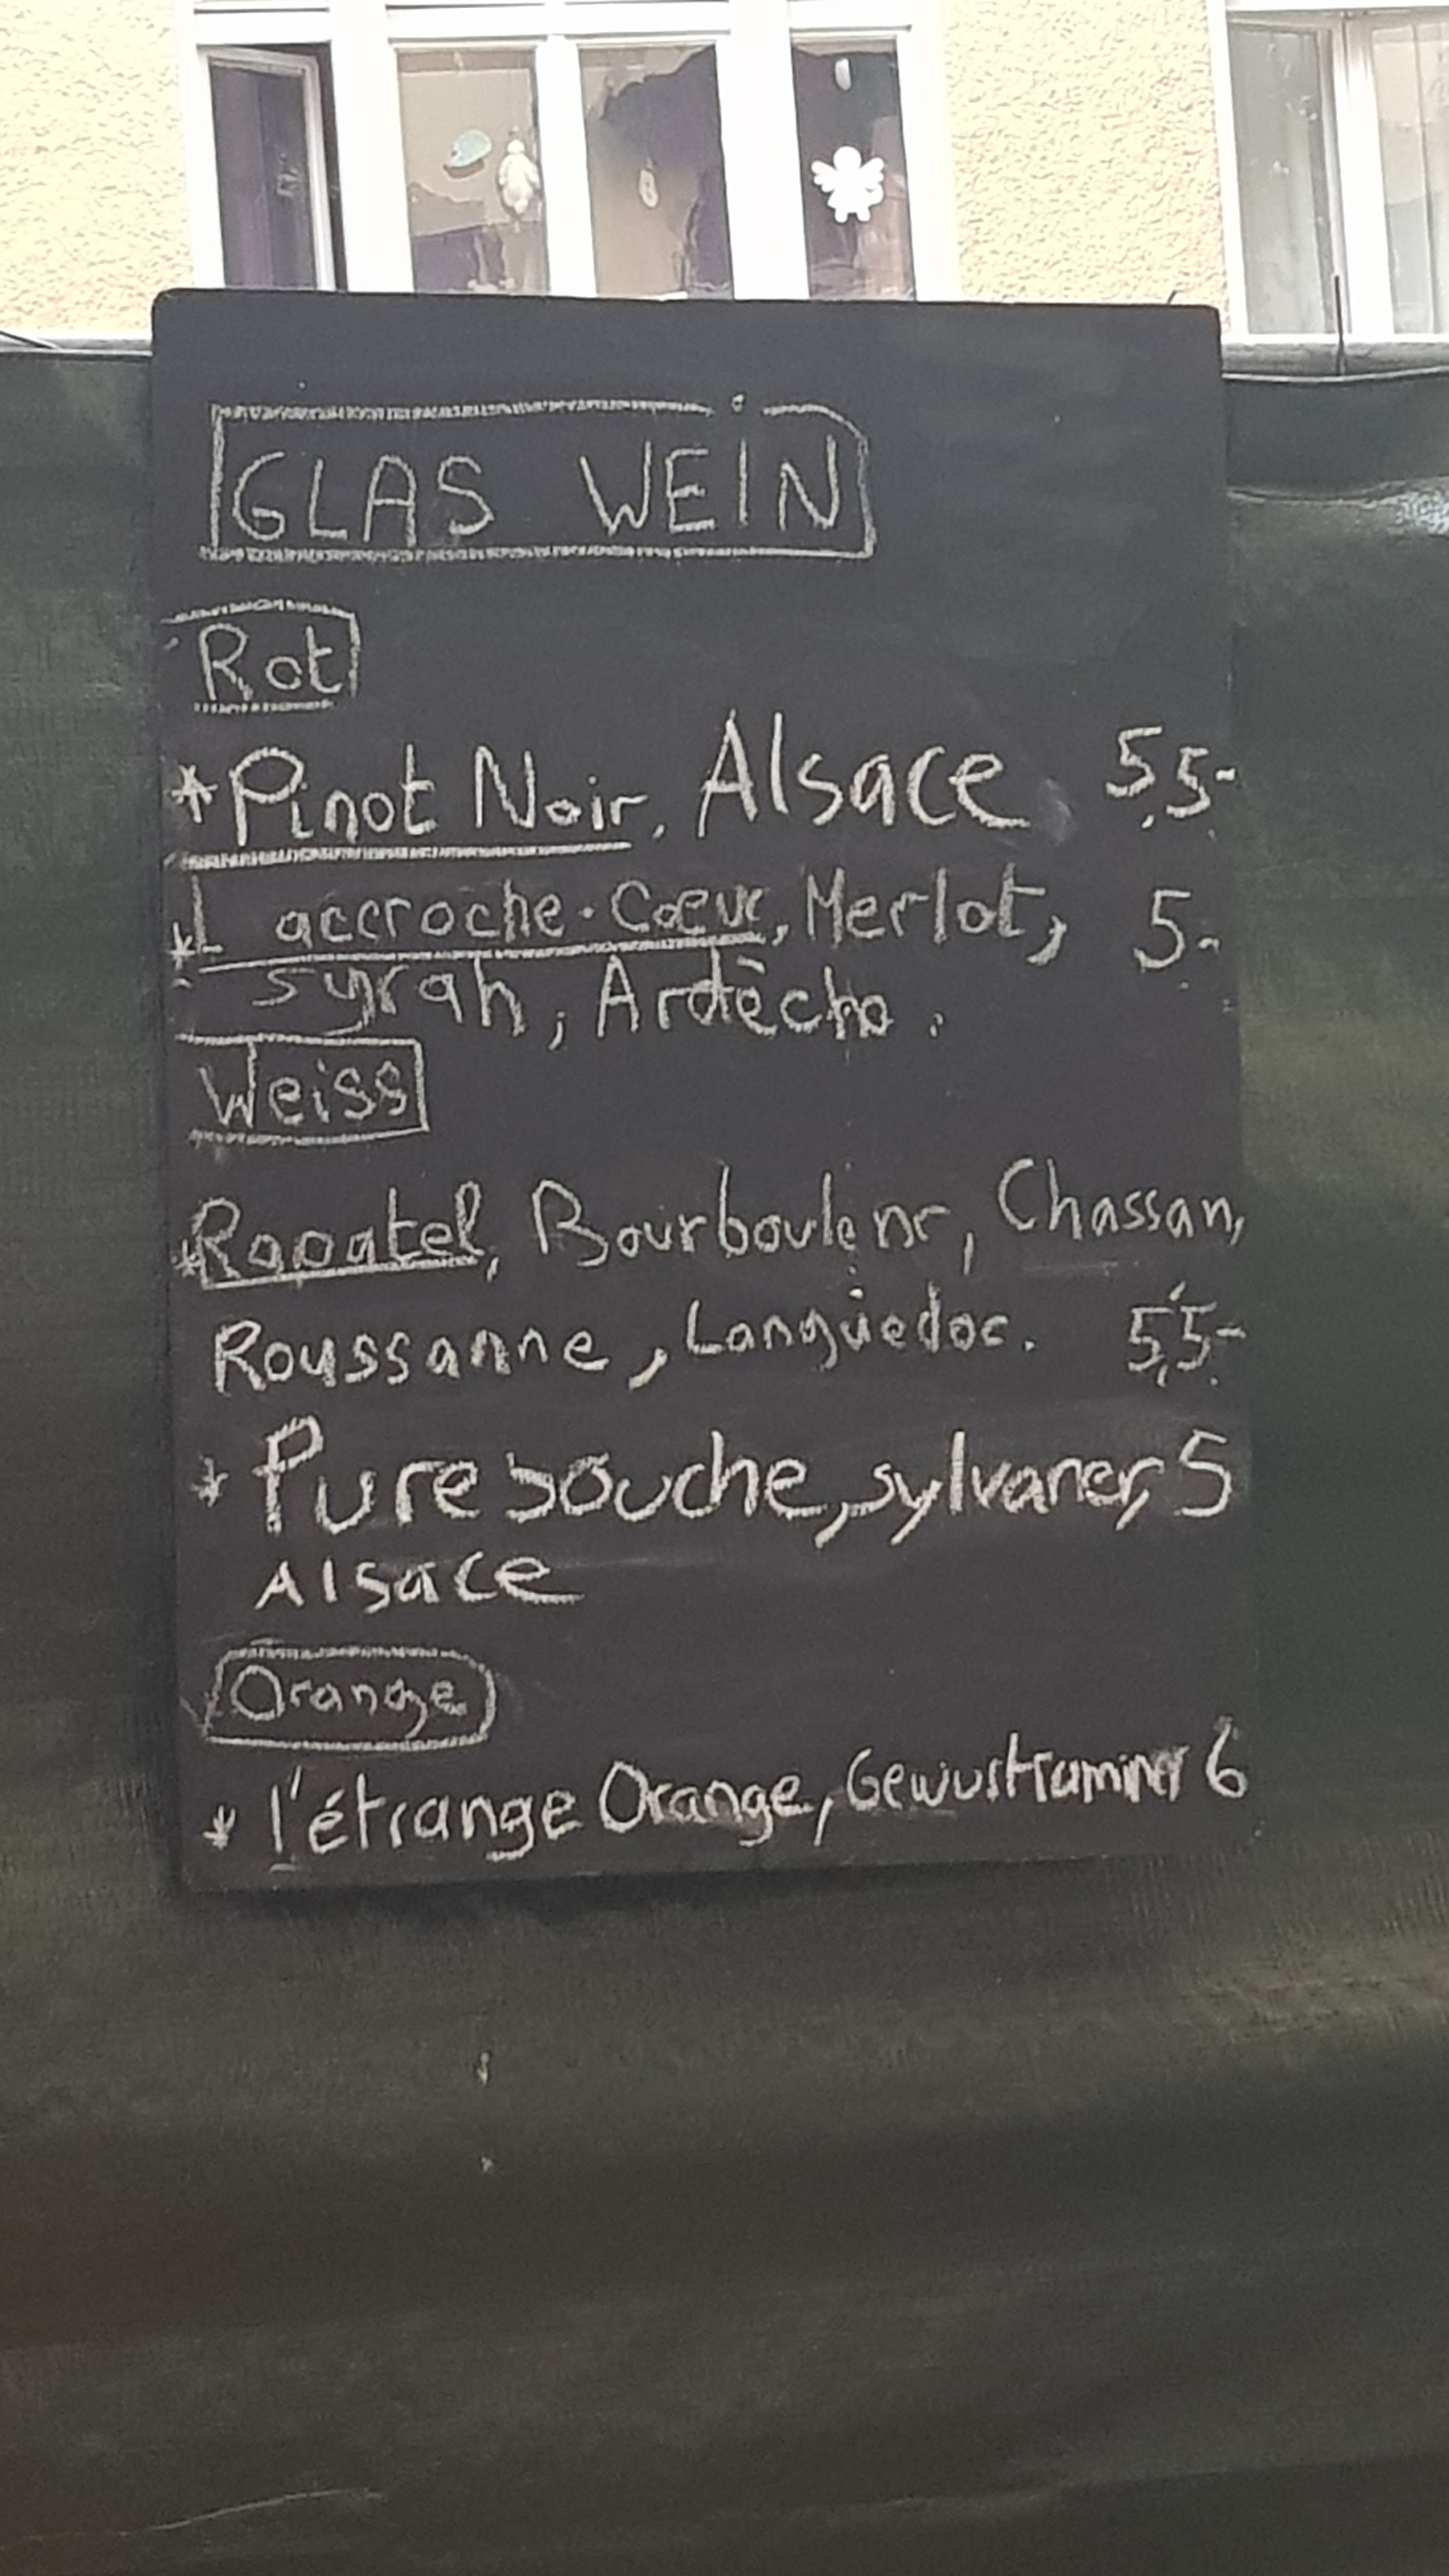 GLAS WEIN
Rot
* Pinot Noir, Alsace 5,5-
* L'accroche-Coeur, Merlot, 5-
Syrah, Ardèche.
Weiss
* Rapatel, Bourboulenc, Chassan,
Roussanne, Languedoc. 5,5-
* Pure souche, sylvaner, 5
Alsace
Orange
* l'étrange Orange, Gewustraminer 6